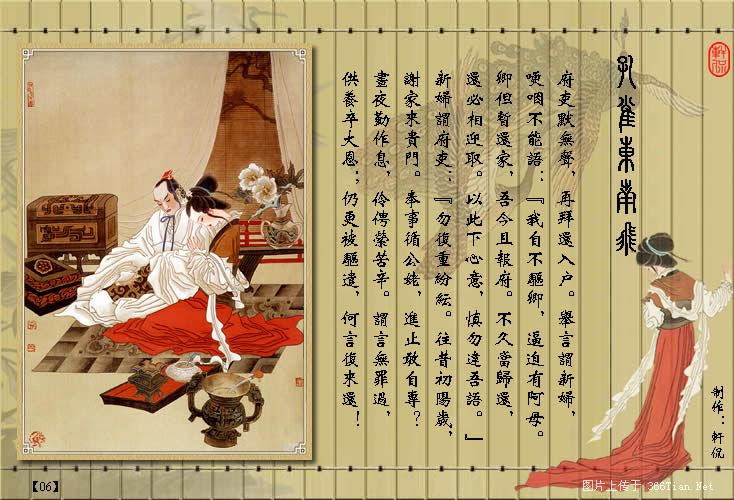 孔雀東南飛
府吏默無聲，再拜還入户。舉言謂新婦，
哽咽不能語：『我自不驅卿，逼迫有阿母。
卿但暫還家，吾今且報府。不久當歸還，
還必相迎取。以此下心意，慎勿違吾語。』
新婦謂府吏：『勿復重紛紜。往昔初陽歲，
謝家來貴門。奉事循公姥，進止敢自專？
晝夜勤作息，伶俜縈苦辛。謂言無罪過，
供養卒大恩；仍更被驅遣，何言復來還！
制作：軒侃
【06】
图片上传于:366Tian.Net